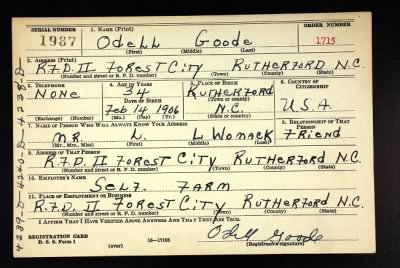 SERIAL NUMBER 1. NAME (Print) ORDER NUMBER
1987 ODELL GOODE 1715
(First) (Middle) (Last)
2. ADDRESS (Print)
R.F.D. II FOREST CITY RUTHERFORD N.C.
(Number and street or R. F. D. number) (Town) (County) (State)
3. TELEPHONE 4. AGE IN YEARS 5. PLACE OF BIRTH 6. COUNTRY OF CITIZENSHIP
NONE 34 RUTHERFORD
DATE OF BIRTH (Town or county)
Feb 14 1906 N.C. U.S.A.
(Exchange) (Number) (Mo.) (Day) (Yr.) (State or country)
7. NAME OF PERSON WHO WILL ALWAYS KNOW YOUR ADDRESS 8. RELATIONSHIP OF THAT PERSON
MR. L. L WOMACK FRIEND
(Mr., Mrs., Miss) (First) (Middle) (Last)
9. ADDRESS OF THAT PERSON
R.F.D. II FOREST CITY RUTHERFORD N.C.
(Number and street or R. F. D. number) (Town) (County) (State)
10. EMPLOYER'S NAME
SELF. FARM
11. PLACE OF EMPLOYMENT OR BUSINESS
R.F.D. II FOREST CITY RUTHERFORD N.C.
(Number and street or R. F. D. number) (Town) (County) (State)
I AFFIRM THAT I HAVE VERIFIED ABOVE ANSWERS AND THAT THEY ARE TRUE.
REGISTRATION CARD Odell Goode
D. S. S. Form 1 (over) 16—17105 (Registrant's signature)